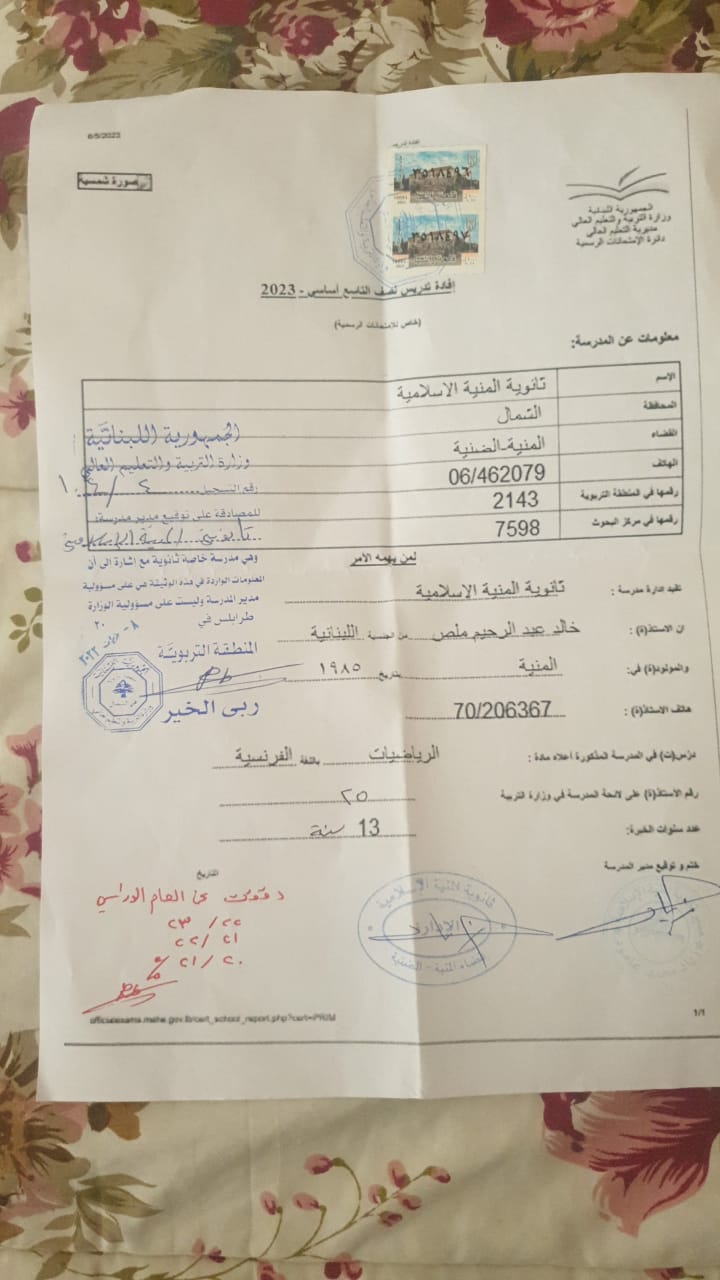 6/5/2023
صورة شمسية
إفادة تدريس
٣٥١٨٤٩٦
٣٥١٨٤٩٧
الجمهورية اللبنانية
وزارة التربية والتعليم العالي
مديرية التعليم العالي
دائرة الإمتحانات الرسمية
إفادة تدريس لصف التاسع أساسي - 2023
(خاص للامتحانات الرسمية)
معلومات عن المدرسة:
الإسم ثانوية المنية الاسلامية
المحافظة الشمال
القضاء المنية-الضنية
الهاتف 06/462079
رقمها في المنطقة التربوية 2143
رقمها في مركز البحوث 7598
الجمهورية اللبنانية
وزارة التربية والتعليم العالي
رقم التسجيل
للمصادقة على توقيع مدير مدرسة:
ثانوية المنية الإسلامية
وهي مدرسة خاصة ثانوية مع إشارة الى أن
المعلومات الواردة في هذه الوثيقة هي على مسؤولية
مدير المدرسة وليست على مسؤولية الوزارة
طرابلس في
المنطقة التربوية
ربى الخير
لمن يهمه الامر
تفيد ادارة مدرسة : ثانوية المنية الإسلامية
ان الاستاذ(ة) : خالد عبد الرحيم ملص من الجنسية اللبنانية
والمولود(ة) في: المنية بتاريخ ١٩٨٥
هاتف الاستاذ(ة) : 70/206367
درّس(ت) في المدرسة المذكورة أعلاه مادة : الرياضيات باللغة الفرنسية
رقم الأستاذ(ة) على لائحة المدرسة في وزارة التربية ٢٥
عدد سنوات الخبرة: 13 سنة
ختم و توقيع مدير المدرسة
التاريخ
عن العام الدراسي
٢٢/٢٣
٢١/٢٢
٢٠/٢١
ثانوية المنية الإسلامية
الإدارة
قضاء المنية - الضنية
officialexams.mehe.gov.lb/cert_school_report.php?cert=PR/M
1/1